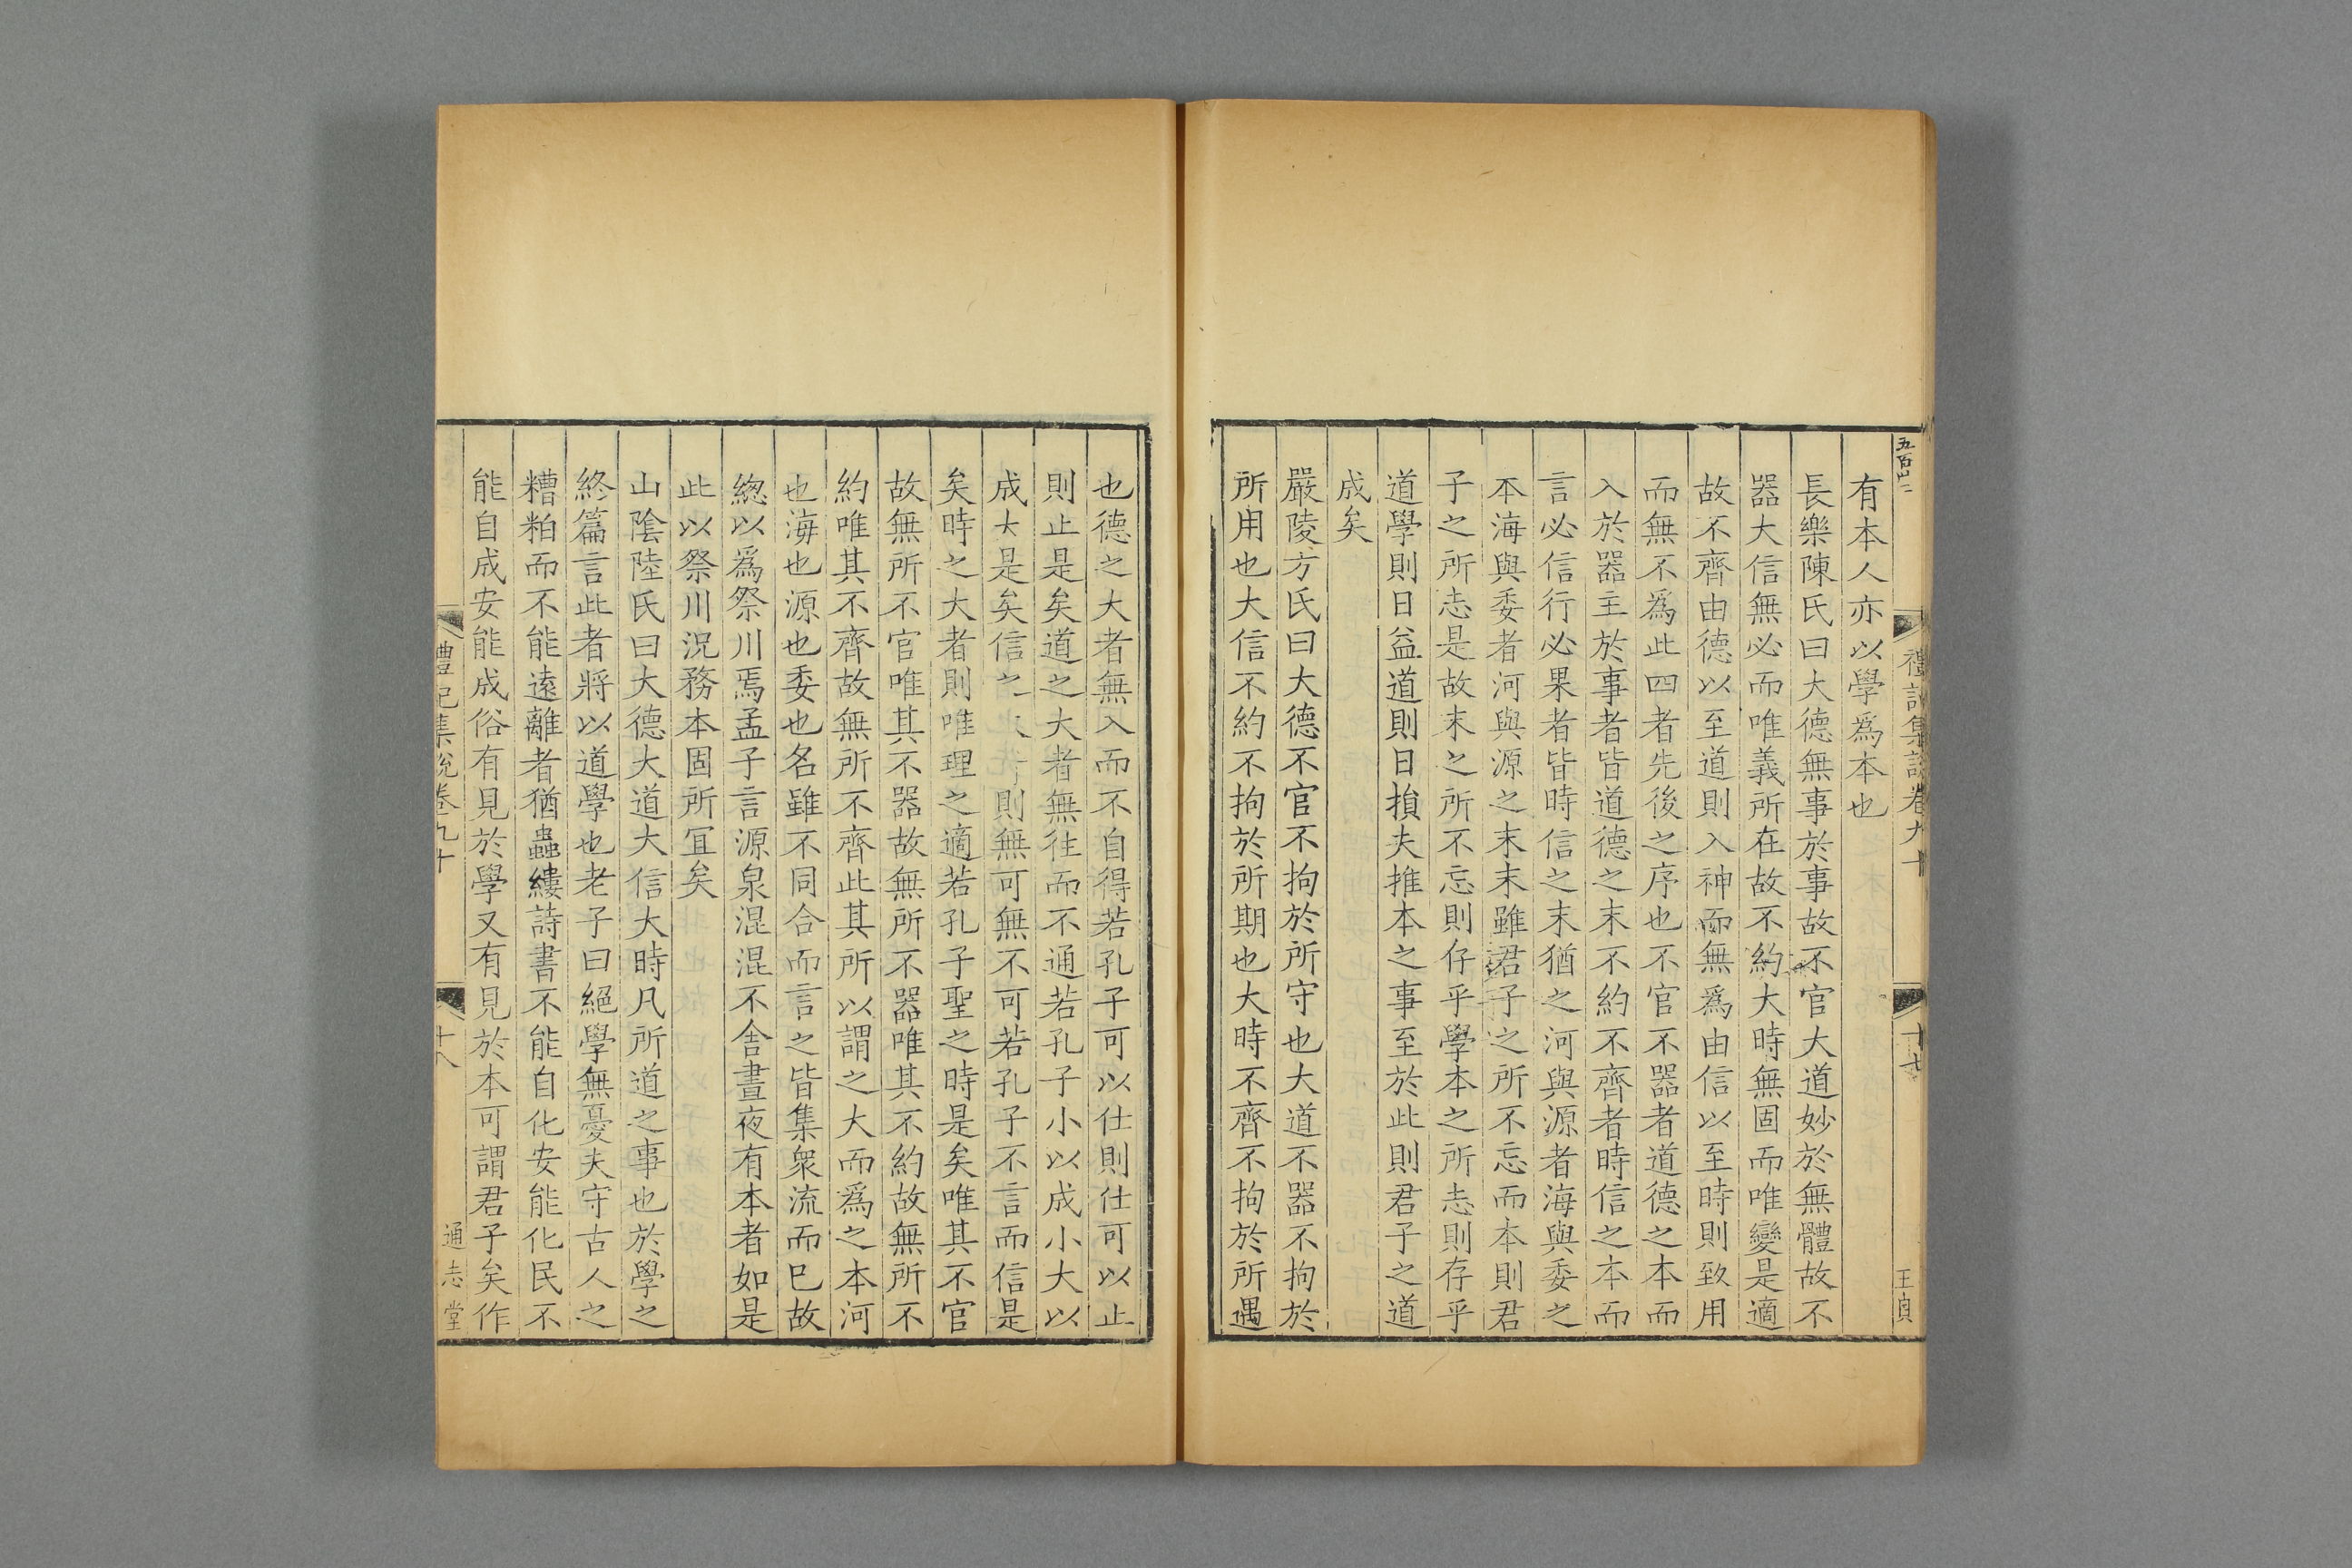 禮記集說卷九十
十七
有本人亦以學爲本也
長樂陳氏曰大德無事於事故不官大道妙於無體故不
器大信無必而唯義所在故不約大時無固而唯變是適
故不齊由德以至道則入神而無爲由信以至時則致用
而無不爲此四者先後之序也不官不器者道德之本而
入於器主於事者皆道德之末不約不齊者時信之本而
言必信行必果者皆時信之末猶之河與源者海與委之
本海與委者河與源之末末雖君子之所不忘而本則君
子之所志是故末之所不忘則仔乎學本之所志則存乎
道學則日益道則日損夫推本之事至於此則君子之道
成矣
嚴陵方氏曰大德不官不拘於所守也大道不器不拘於
所用也大信不約不拘於所期也大時不齊不拘於所遇
也德之大者無入而不自得若孔子可以仕則仕可以止
則止是矣道之大者無往而不通若孔子小以成小大以
成大是矣信之則無可無不可若孔子不言而信是
矣時之大者則唯理之適若孔子聖之時是矣唯其不官
故無所不官唯其不器故無所不器唯其不約故無所不
約唯其不齊故無所不齊此其所以謂之大而爲之本河
也海也源也委也名雖不同合而言之皆集衆流而已故
緫以爲祭川焉孟子言源泉混混不舍晝夜有本者如是
此以祭川況務本固所宜矣
山陰陸氏曰大德大道大信大時凡所道之事也於學之
終篇言此者將以道學也老子曰絕學無憂夫守古人之
糟粕而不能遠離者猶蟲縷詩書不能自化安能化民不
能自成安能成俗有見於學又有見於本可謂君子矣作
禮記集說卷九十
十八
通志堂